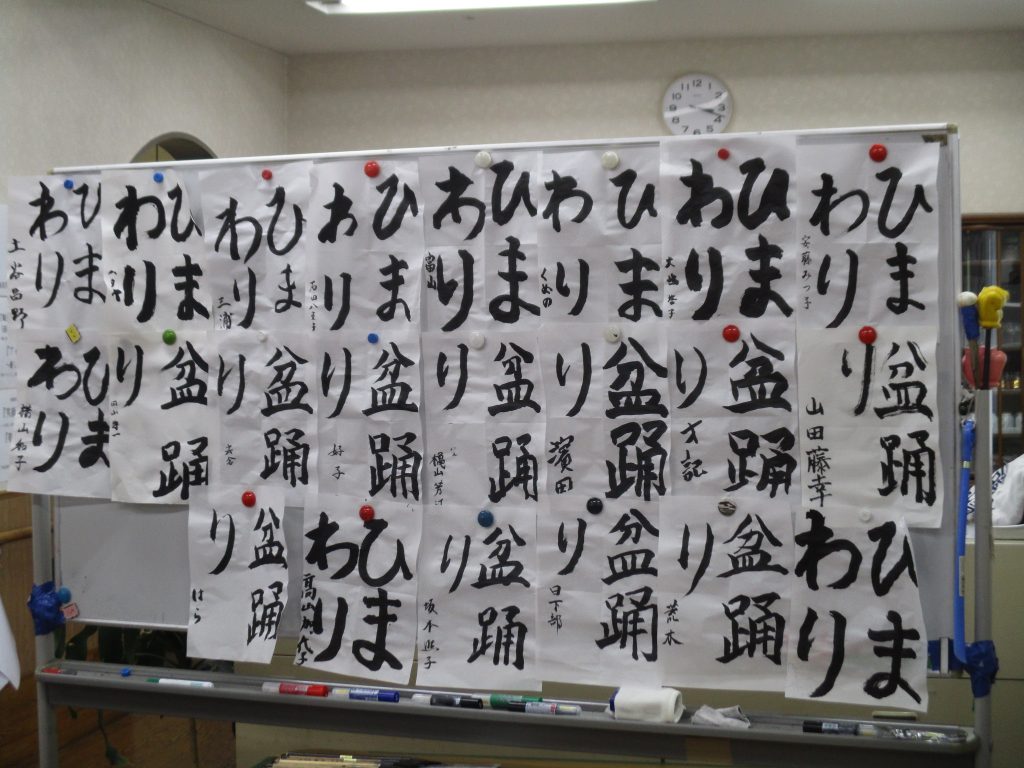 ひま
わり
安藤みつ子
ひま
わり
ひま
わり
くめの
ひま
わり
富山
ひま
わり
ひま
わり
三浦
ひま
わり
ひま
わり
土谷昌野
盆踊
り
山田藤幸
盆踊
り
才記
盆踊
り
濱田
盆踊
り
盆踊
り
好子
盆踊
り
盆踊
り
ひま
わり
横山和子
ひま
わり
盆踊
り
荒木
盆踊
り
日下部
盆踊
り
ひま
わり
盆踊
り
はら